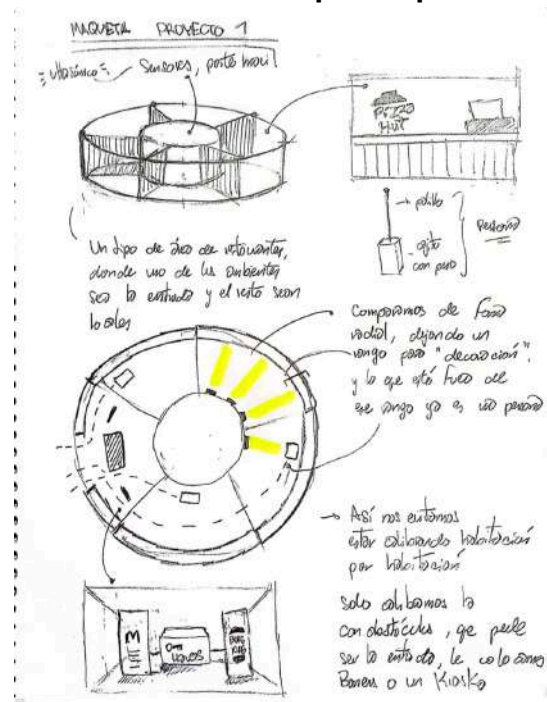 MAQUETA PROYECTO 1
ultrasónico
Sensores, parte móvil
PIZZA
HUT
→ palillo
cajita
con peso
Persona
Un tipo de área de restaurantes,
donde uno de los ambientes
sea la entrada y el resto sean
locales
Comparamos de forma
radial, dejando un
rango para "decoración",
y lo que está fuera de
ese rango ya es una persona
→ Así nos evitamos
estar calibrando habitación
por habitación
solo calibramos la
con obstáculos, que puede
ser la entrada, le colocamos
Baners o un Kiosko